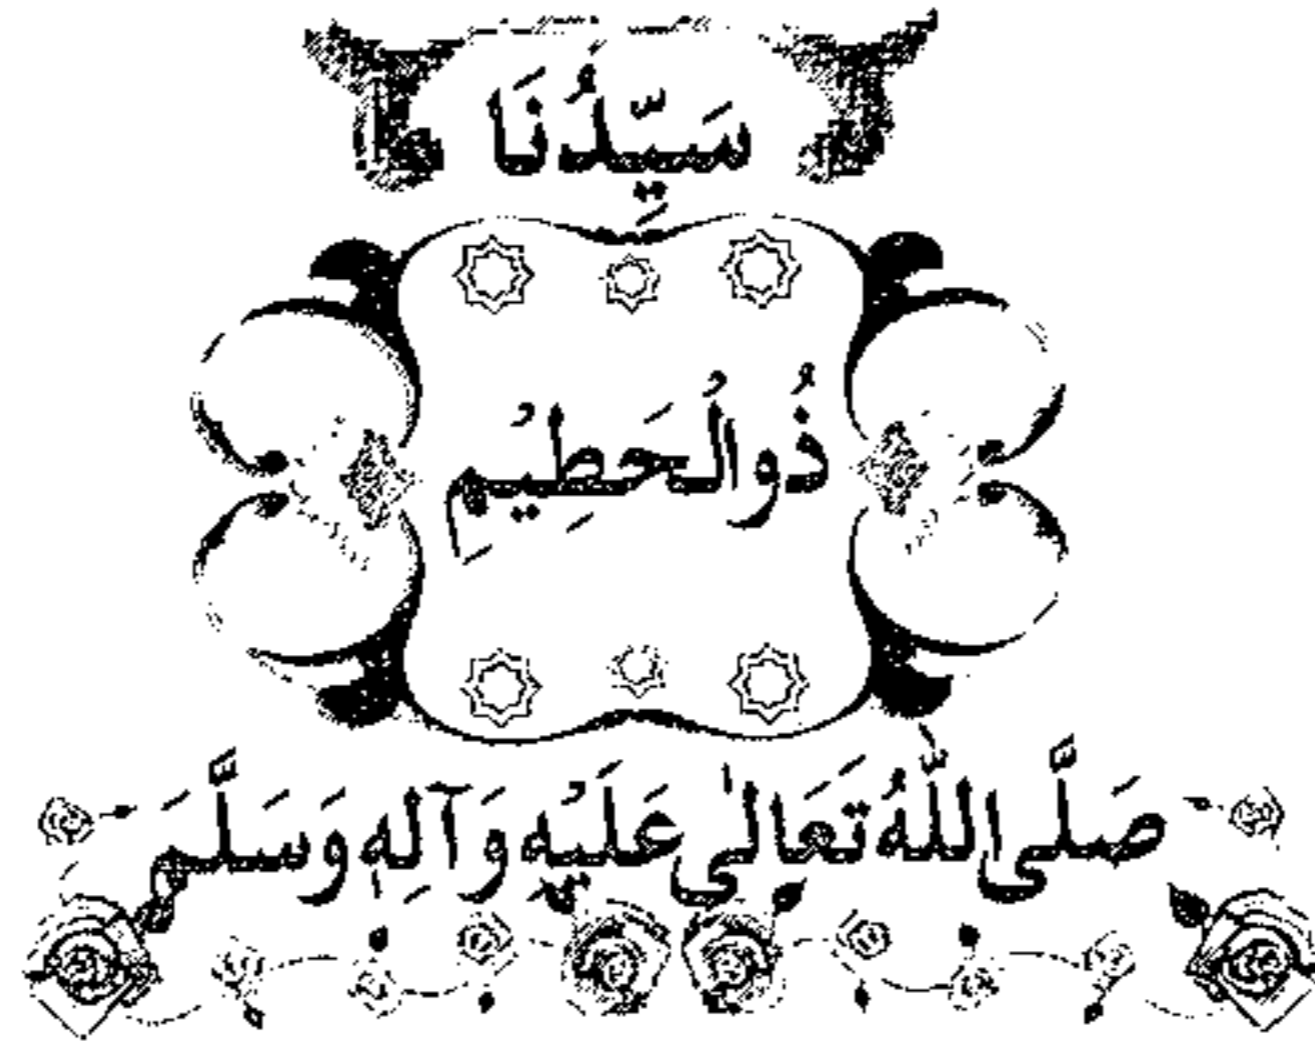 سَيِّدُنَا
ذُوالْحَطِيْمِ
صَلَّى اللّٰهُ تَعَالٰى عَلَيْهِ وَآلِهٖ وَسَلَّمَ